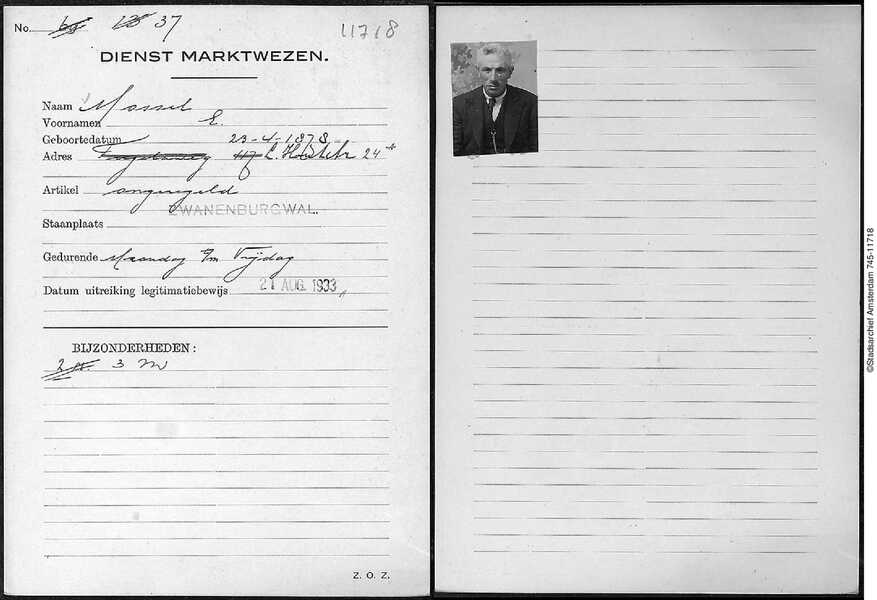 No. 63 123 37
11718
DIENST MARKTWEZEN.
Naam Mossel
Voornamen E.
Geboortedatum 23-4-1878
Adres 24
Artikel ongeregeld
ZWANENBURGWAL.
Staanplaats
Gedurende Maandag t/m Vrijdag
Datum uitreiking legitimatiebewijs 21 AUG. 1933
BIJZONDERHEDEN:
2 M. 3 M
Z. O. Z.
©Stadsarchief Amsterdam 745-11718